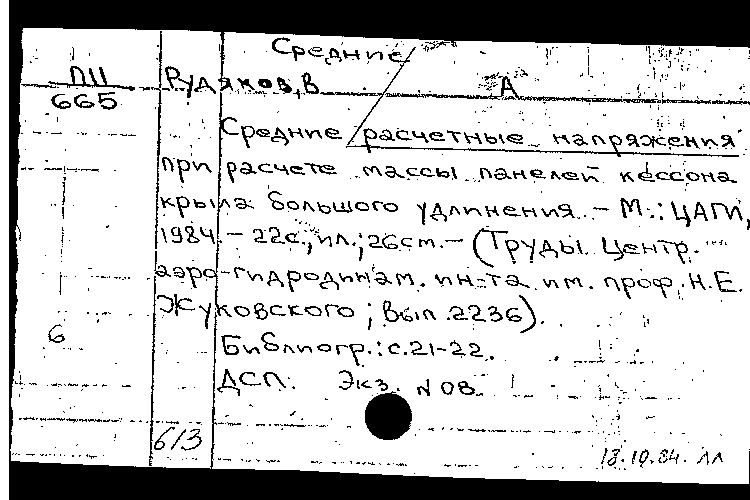 Средние
П11
665
Рудяков, В
А
Средние расчетные напряжения
при расчете массы панелей кессона
крыла большого удлинения. - М.: ЦАГИ,
1984. - 22с., ил.; 26см. - (Труды Центр.
аэро-гидродинам. ин-та им. проф. Н.Е.
Жуковского; Вып. 2236).
6
Библиогр.: с.21-22.
ДСП. Экз. N 08
613
18.10.84. лл